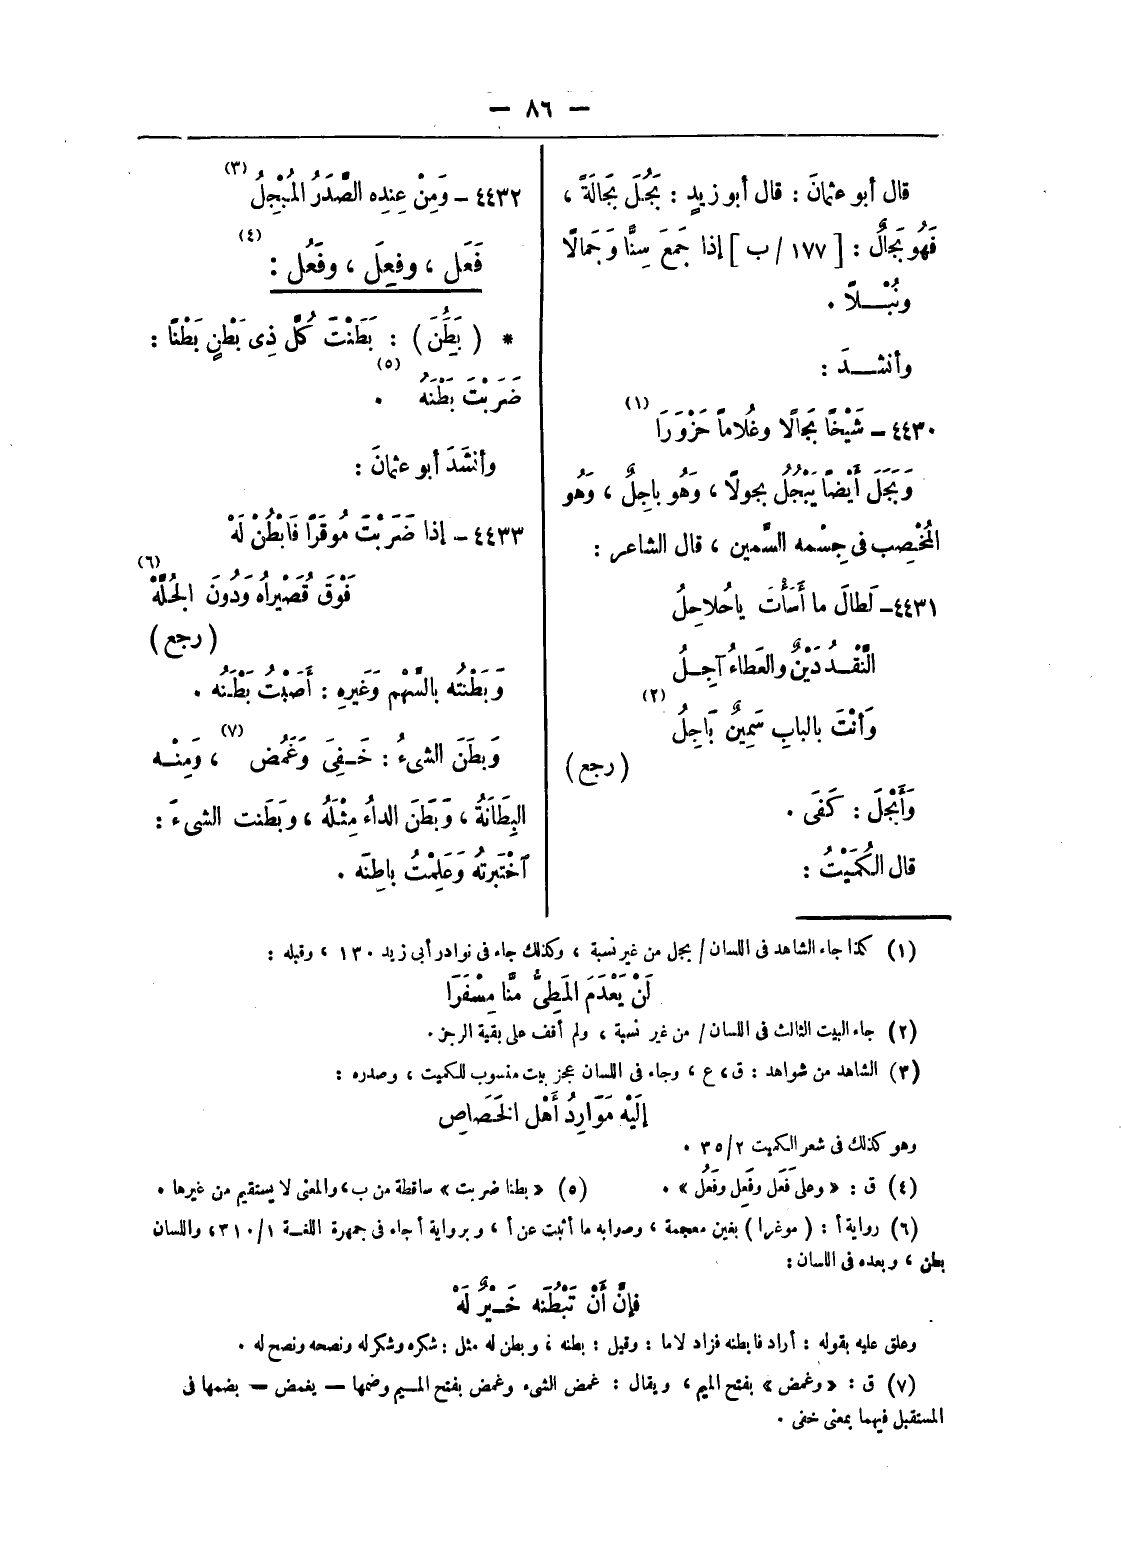 — ٨٦ —
قال أبو عثمانَ : قال أبو زيدٍ : بَجُلَ بَجَالَةً ،
فَهُو بَجَالٌ : [ ١٧٧ / ب ] إذا جَمَعَ سِنًّا وَجَمالًا
ونُبْـــلاً .
وأنشــدَ :
٤٤٣٠ ـ شَيْخًا بَجَالًا وغُلاماً حَزْوَرَا (١)
وَبَجَلَ أَيْضاً يَبْجُلُ بجولًا ، وَهُو باجِلٌ ، وَهُو
المُخْصِب فى جِسْمه السَّمين ، قال الشاعر :
٤٤٣١ ـ لَطالَ ما أَسَأْتَ ياحُلاحِلُ
النَّقْـدُ دَيْنٌ والعَطاءُ آجِـلُ
وَأنْتَ بالبابِ سَمِينٌ بَاجِلُ (٢)
( رجع )
وَأَبْجَلَ : كَفَى .
قال الكُمَيْتُ :
٤٤٣٢ ـ وَمِنْ عِندِه الصَّدَرُ المُبْجِلُ (٣)
فَعَل ، وفعِلَ ، وفَعُل : (٤)
* ( بَطُنَ ) : بَطَنْتَ كُلَّ ذِى بَطْنٍ بَطْنًا :
ضَرَبْتَ بَطْنَهُ (٥) .
وأنْشَدَ أبو عثمانَ :
٤٤٣٣ ـ إذا ضَرَبْتَ مُوقَرًا فَابْطُنْ لَهْ
فَوْقَ قُصَيْراهُ وَدُونَ الجُلَّهْ (٦)
( رجع )
وَبَطَنْتُه بالسَّهْم وَغَيرِهِ : أَصَبْتُ بَطْنَه .
وَبطَنَ الشىءُ : خَـفِىَ وَغَمُض (٧) ، وَمِنْـه
البِطَانَةُ ، وَبَطَنَ الداءُ مِثْلَهُ ، وبَطَنت الشىءَ :
آخْتَبرتهُ وَعَلِمْتُ باطِنَه .
(١) كذا جاء الشاهد فى اللسان / بجل من غير نسبة ، وكذلك جاء فى نوادر أبى زيد ١٣٠ ، وقبله :
لَنْ يَعْدَمَ المَطِىُّ مِنَّا مِسْفَرَا
(٢) جاء البيت الثالث فى اللسان / من غير نسبة ، ولم أقف على بقية الرجز .
(٣) الشاهد من شواهد : ق ، ع ، وجاء فى اللسان عجز بيت منسوب للكميت ، وصدره :
إلَيْه مَوَارِدُ أَهْل الخَصَاصِ
وهو كذلك فى شعر الكميت ٣٥/٢ .
(٤) ق : « وعلى فَعَل وفَعِل وفَعُل » . (٥) « بطنا ضربت » ساقطة من ب ، والمعنى لا يستقيم من غيرها .
(٦) رواية أ : ( موغرا ) بغين معجمة ، وصوابه ما أثبت عن أ ، و برواية أ جاء فى جمهرة اللغـة ٣١٠/١ ، واللسان
بطن ، و بعده فى اللسان :
فإنَّ أنْ تَبْطُنَه خَـيْرٌ لَهْ
وعلق عليه بقوله : أراد فابطنه فزاد لاما : وقيل : بطنه ، و بطن له مثل : شكره وشكر له ونصحه ونصح له .
(٧) ق : « وغمض » بفتح الميم ، ويقال : غمض الشىء وغمض بفتح المـيم وضمها — يغمض — بضمها فى
المستقبل فيهما بمعنى خفى .